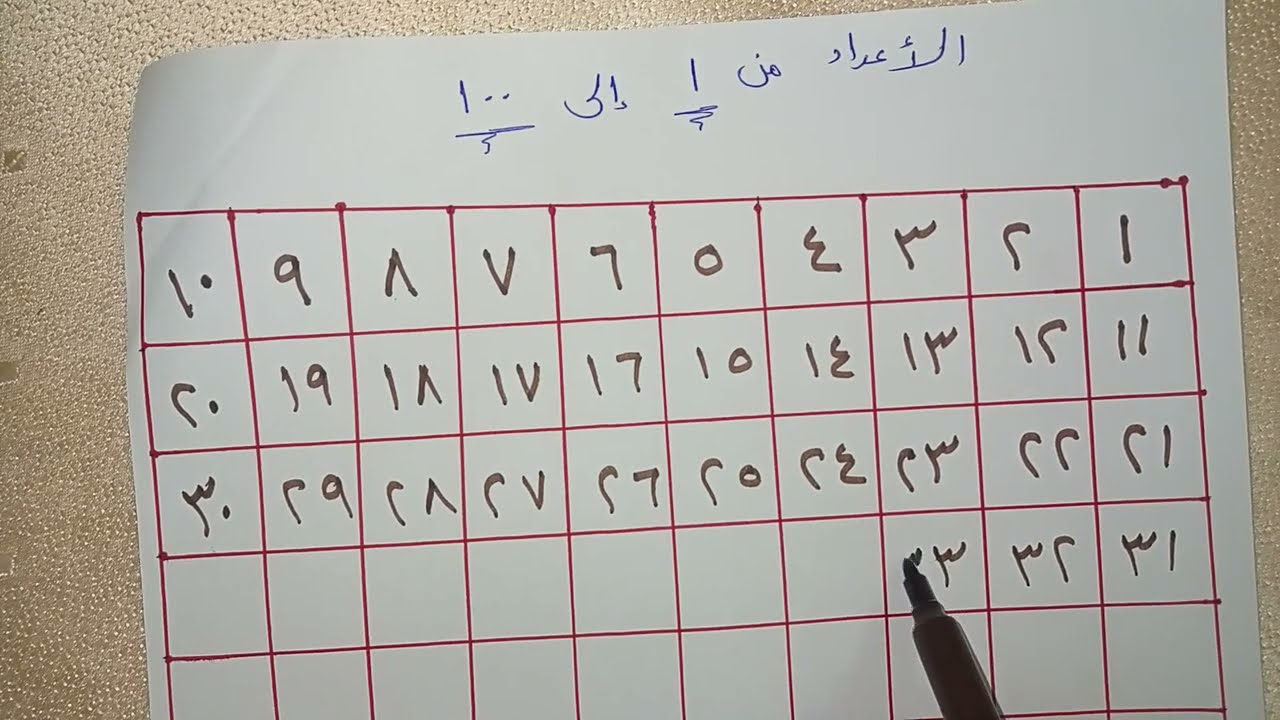 الأعداد من ١ إلى ١٠٠
١ ٢ ٣ ٤ ٥ ٦ ٧ ٨ ٩ ١٠
١١ ١٢ ١٣ ١٤ ١٥ ١٦ ١٧ ١٨ ١٩ ٢٠
٢١ ٢٢ ٢٣ ٢٤ ٢٥ ٢٦ ٢٧ ٢٨ ٢٩ ٣٠
٣١ ٣٢ ٣٣